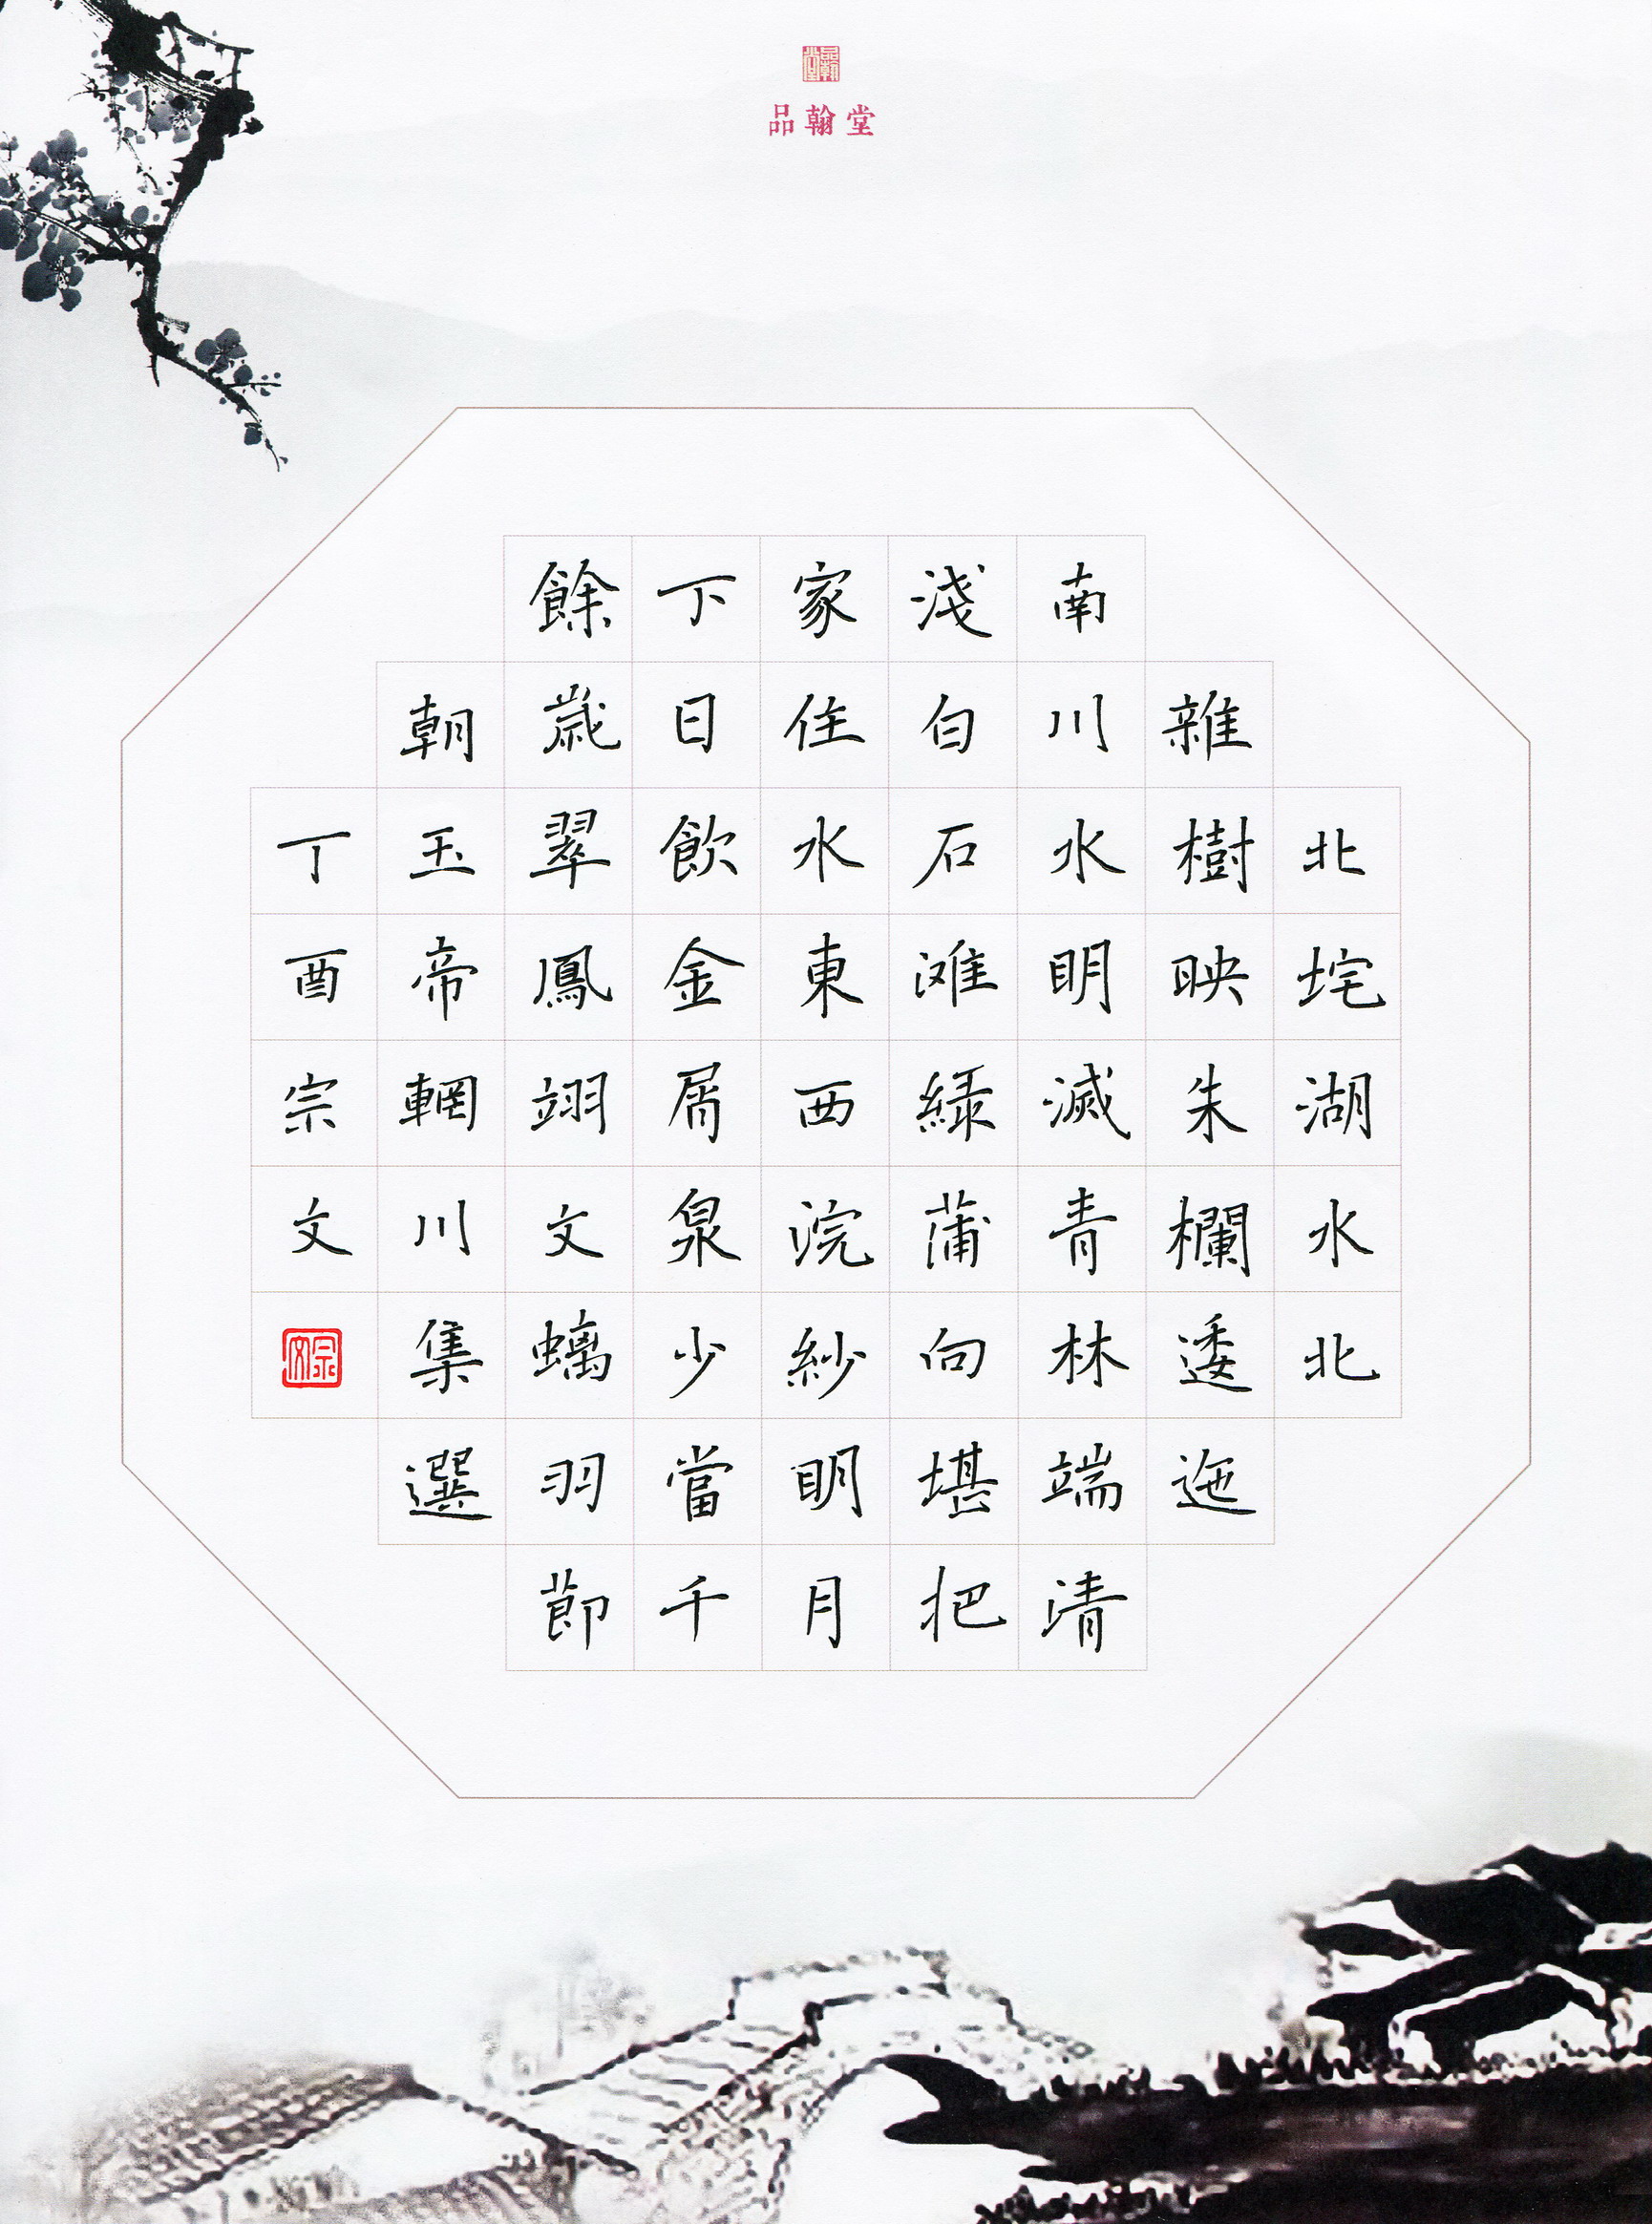 品翰堂
北垞湖水北
雜樹映朱欄逶迤
南川水明滅青林端清
淺白石灘綠蒲向堪把
家住水東西浣紗明月
下日飲金屑泉少當千
餘歲翠鳳翊文螭羽節
朝玉帝輞川集選
丁酉宗文